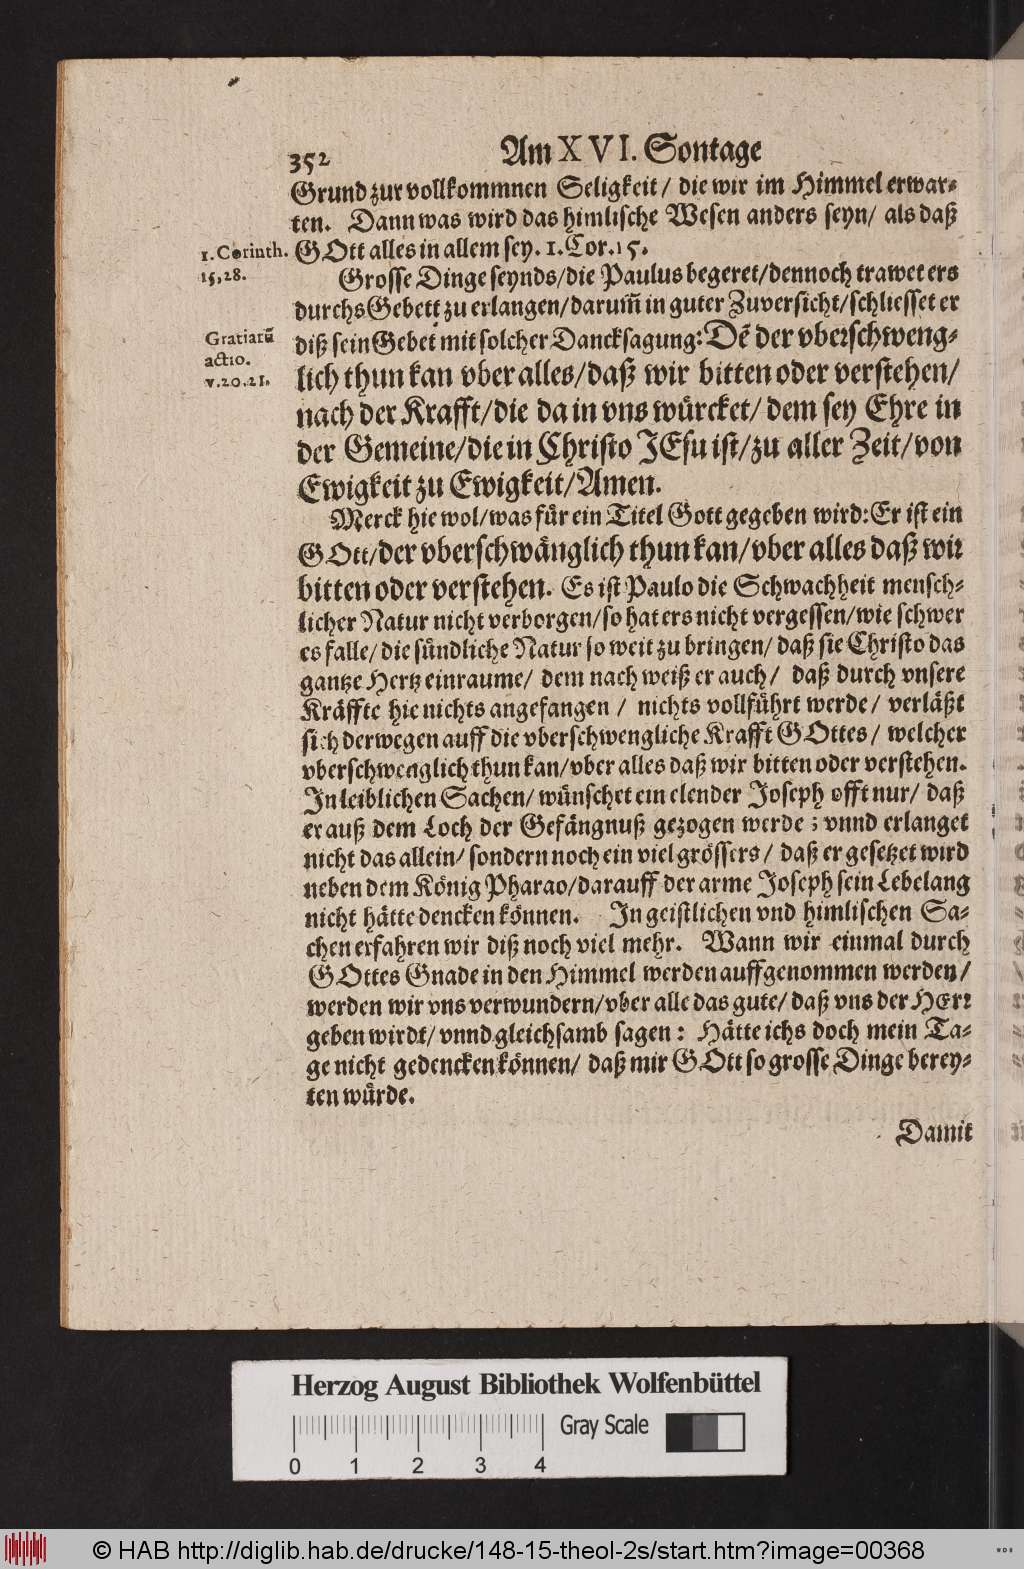 352
Am XVI. Sontage
Grund zur vollkommnen Seligkeit/ die wir im Himmel erwar-
ten. Dann was wird das himlische Wesen anders seyn/ als daß
1. Corinth.
15,28.
GOtt alles in allem sey. 1. Cor. 15.
Grosse Dinge seynds/die Paulus begeret/dennoch trawet ers
durchs Gebett zu erlangen/darum̃ in guter Zuversicht/schliesset er
Gratiarũ
actio.
v.20.21.
diß sein Gebet mit solcher Dancksagung: Dẽ der vberschweng-
lich thun kan vber alles/daß wir bitten oder verstehen/
nach der Krafft/die da in vns wůrcket/ dem sey Ehre in
der Gemeine/die in Christo JEsu ist/zu aller Zeit/von
Ewigkeit zu Ewigkeit/Amen.
Merck hie wol/was fůr ein Titel Gott gegeben wird: Er ist ein
GOtt/der vberschwånglich thun kan/vber alles daß wir
bitten oder verstehen. Es ist Paulo die Schwachheit mensch-
licher Natur nicht verborgen/so hat ers nicht vergessen/wie schwer
es falle/die sůndliche Natur so weit zu bringen/ daß sie Christo das
gantze Hertz einraume/ dem nach weiß er auch/ daß durch vnsere
Kråffte hie nichts angefangen / nichts vollfůhrt werde/ verlåßt
sich derwegen auff die vberschwengliche Krafft GOttes/ welcher
vberschwenglich thun kan/vber alles daß wir bitten oder verstehen.
In leiblichen Sachen/ wůnschet ein elender Joseph offt nur/ daß
er auß dem Loch der Gefångnuß gezogen werde; vnnd erlanget
nicht das allein/ sondern noch ein viel grössers/ daß er gesetzet wird
neben dem König Pharao/darauff der arme Joseph sein Lebelang
nicht håtte dencken können. In geistlichen vnd himlischen Sa-
chen erfahren wir diß noch viel mehr. Wann wir einmal durch
GOttes Gnade in den Himmel werden auffgenommen werden/
werden wir vns verwundern/vber alle das gute/ daß vns der HErr
geben wirdt/ vnnd gleichsamb sagen: Håtte ichs doch mein Ta-
ge nicht gedencken können/ daß mir GOtt so grosse Dinge berey-
ten wůrde.
Damit
Herzog August Bibliothek Wolfenbüttel
Gray Scale
0 1 2 3 4
© HAB http://diglib.hab.de/drucke/148-15-theol-2s/start.htm?image=00368